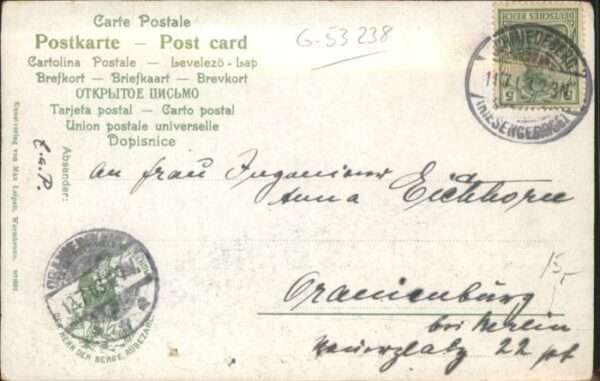 Carte Postale
Postkarte – Post card
Cartolina Postale – Levelező-Lap
Brefkort – Briefkaart – Brevkort
ОТКРЫТОЕ ПИСЬМО
Tarjeta postal – Carto postal
Union postale universelle
Dopisnice
G-53 238
DEUTSCHES REICH
5 5
(RIESENGEBIRGE)
Absender:
An Frau Ingenieur
Anna Eichhorn
Oranienburg
bei Berlin
22 pt
15,-
ORANIENBURG
DER HERR DER BERGE, RÜBEZAHL
Kunstverlag von Max Leipelt, Warmbrunn.